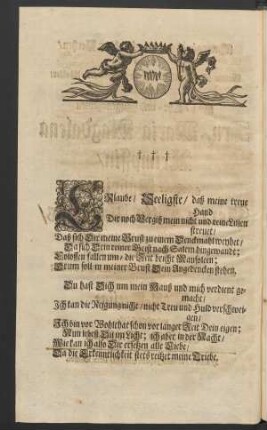 † † †
ERlaube/ Seeligste/ daß meine treue
Hand
Dir noch Vergiß mein nicht und reine Lilien
streuet/
Daß sich Dir meine Brust zu einem Denckmahl weyhet/
Da sich Dein reiner Geist nach Salem hingewandt;
Colossen fallen um/ die Zeit bricht Mausoleen;
Drum soll in meiner Brust Dein Angedencken stehen.
Du hast Dich um mein Hauß und mich verdient ge-
macht/
Ich kan die Neigung nicht/ nicht Treu und Huld verschwei-
gen/
Ich bin vor Wohlthat schon vor langer Zeit Dein eigen;
Nun lebest Du im Licht; ich aber in der Nacht/
Wie kan ich alle Dir ersetzen alle Liebe/
Da die Erkenntlichkeit stets reitzet meine Triebe.